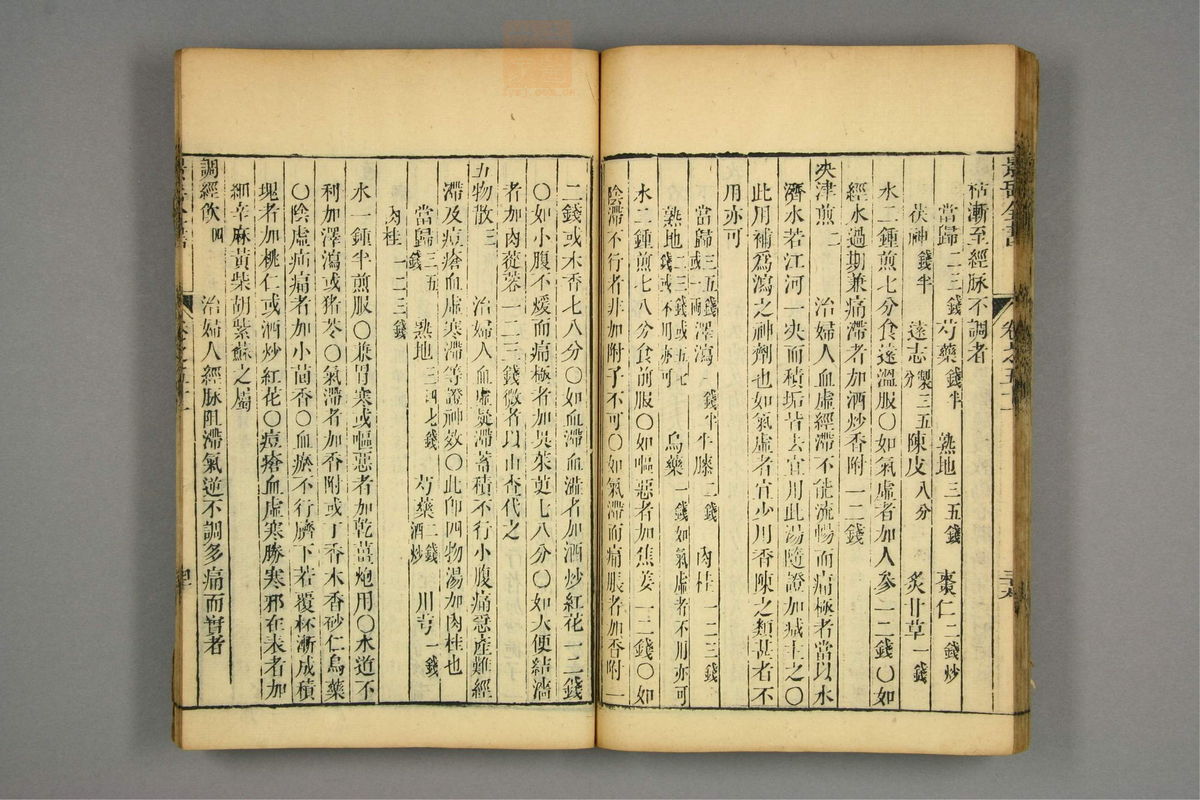 景岳全書 卷之五十一
枯漸至經脉不調者
當歸二三錢 芍藥錢半 熟地三五錢 棗仁二錢炒
茯神錢半 遠志製三五分 陳皮八分 炙甘草一錢
水二鍾煎七分食遠溫服〇如氣虛者加人參一二錢〇如
經水過期兼痛滯者加酒炒香附一二錢
決津煎二 治婦人血虛經滯不能流暢而痛極者當以水
濟水若江河一决而積垢皆去宜用此湯隨證加減主之〇
此用補爲瀉之神劑也如氣虛者宜少用香陳之類甚者不
用亦可
當歸三五錢或一兩 澤瀉一錢半 牛膝二錢 肉桂一二三錢
熟地二三錢或五七錢或不用亦可 烏藥一錢如氣虛者不用亦可
水二鍾煎七八分食前服〇如嘔惡者加焦姜一二錢〇如
陰滯不行者非加附子不可〇如氣滯而痛脹者加香附一
二錢或木香七八分〇如血滯血澁者加酒炒紅花一二錢
〇如小腹不煖而痛極者加吳茱萸七八分〇如大便結濇
者加肉蓯蓉一二三錢微者以山查代之
五物散三 治婦人血虛凝滯蓄積不行小腹痛急產難經
滯及痘瘡血虛寒滯等證神效〇此卽四物湯加肉桂也
當歸三五錢 熟地三四七錢 芍藥二錢酒炒 川芎一錢
肉桂一二三錢
水一鍾半煎服〇兼胃寒或嘔惡者加乾薑炮用〇水道不
利加澤瀉或猪苓〇氣滯者加香附或丁香木香砂仁烏藥
〇陰虛疝痛者加小茴香〇血瘀不行臍下若覆杯漸成積
塊者加桃仁或酒炒紅花〇痘瘡血虛寒勝寒邪在表者加
細辛麻黃柴胡紫蘇之屬
調經飲四 治婦人經脉阻滯氣逆不調多痛而實者